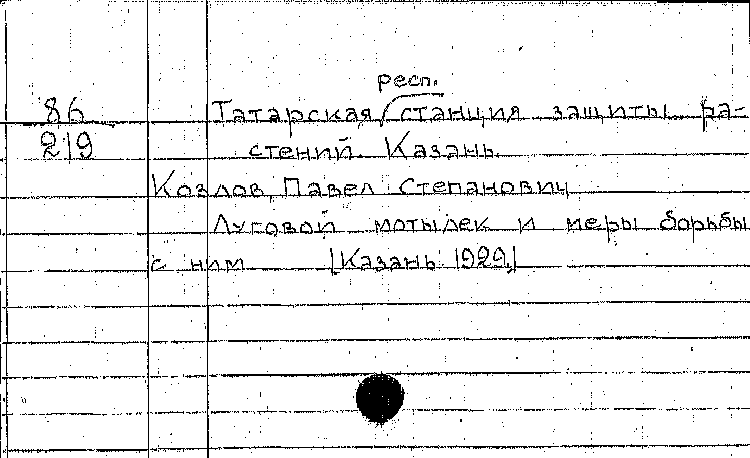 респ.
86 Татарская станция защиты ра-
219 стений. Казань.
Козлов, Павел Степанович
Луговой мотылек и меры борьбы
с ним [Казань 1929]